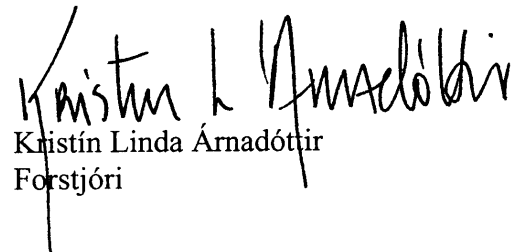 Kristín L Árnadóttir
Kristín Linda Árnadóttir
Forstjóri